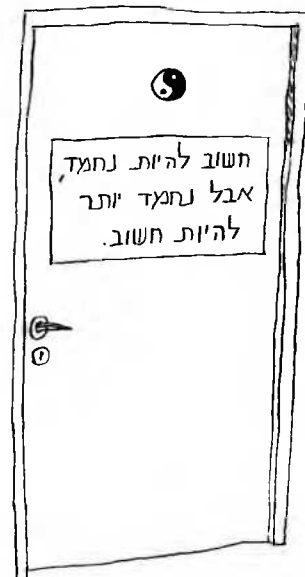 חשוב להיות נחמד,
אבל נחמד יותר
להיות חשוב.